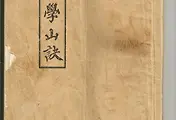 學山訣